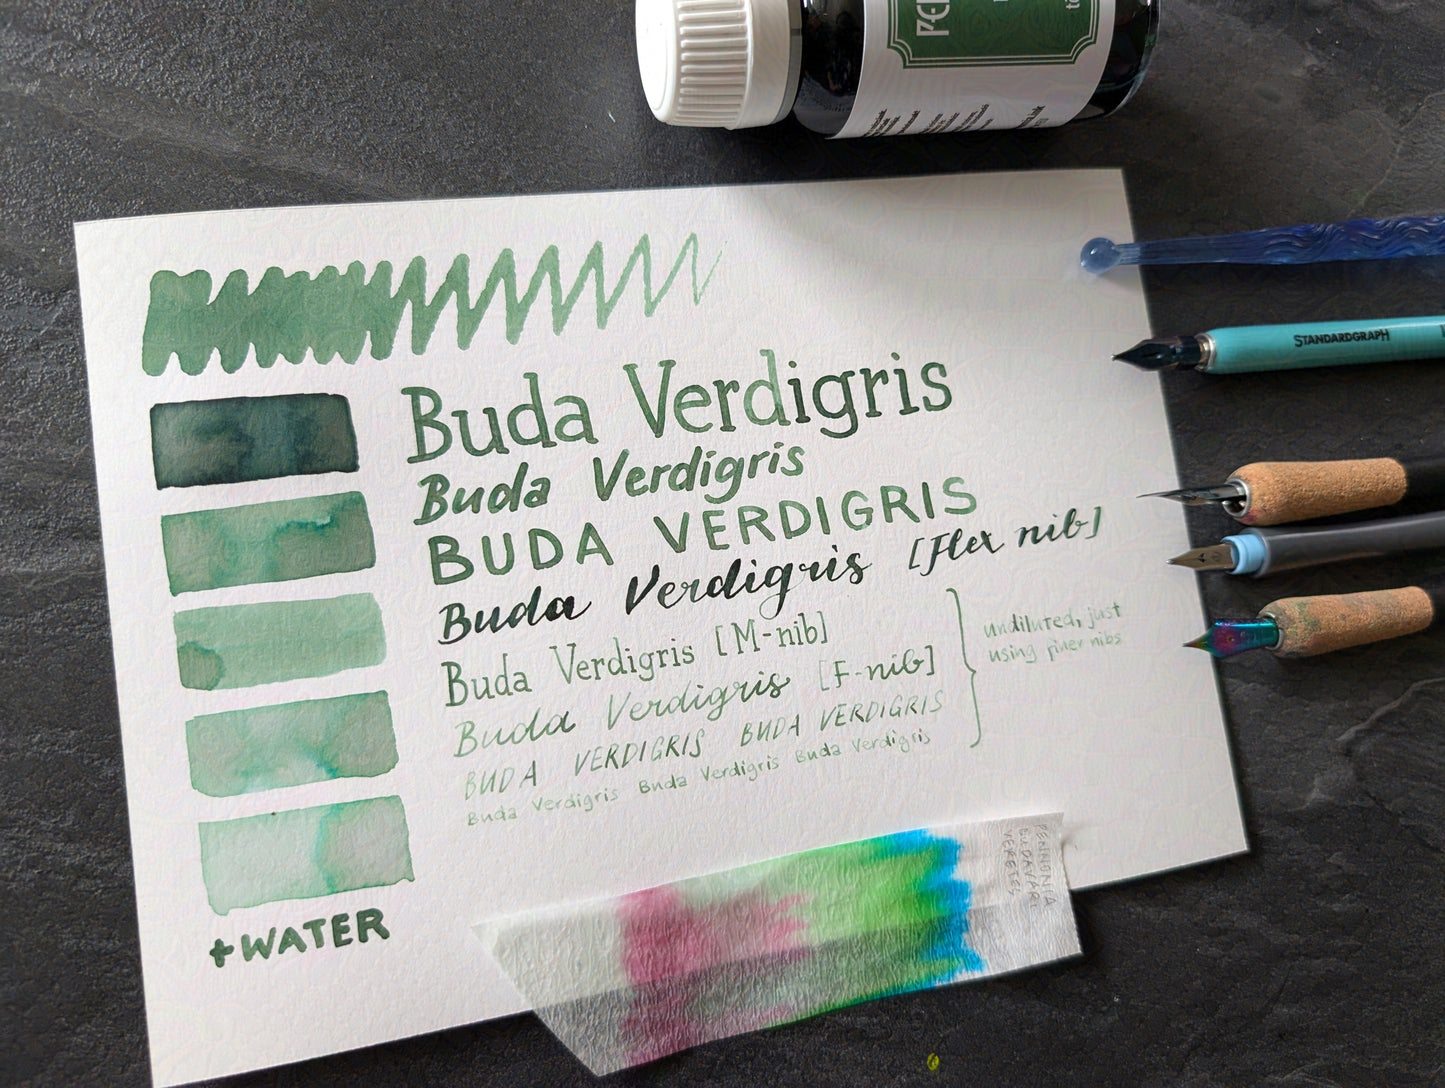 STANDARDGRAPH
Buda Verdigris
Buda Verdigris
BUDA VERDIGRIS
Buda Verdigris [Flex nib]
Buda Verdigris [M-nib]
Buda Verdigris [F-nib]
BUDA VERDIGRIS BUDA VERDIGRIS
Buda Verdigris Buda Verdigris Buda Verdigris
undiluted, just
using finer nibs
+WATER
PENNONIA